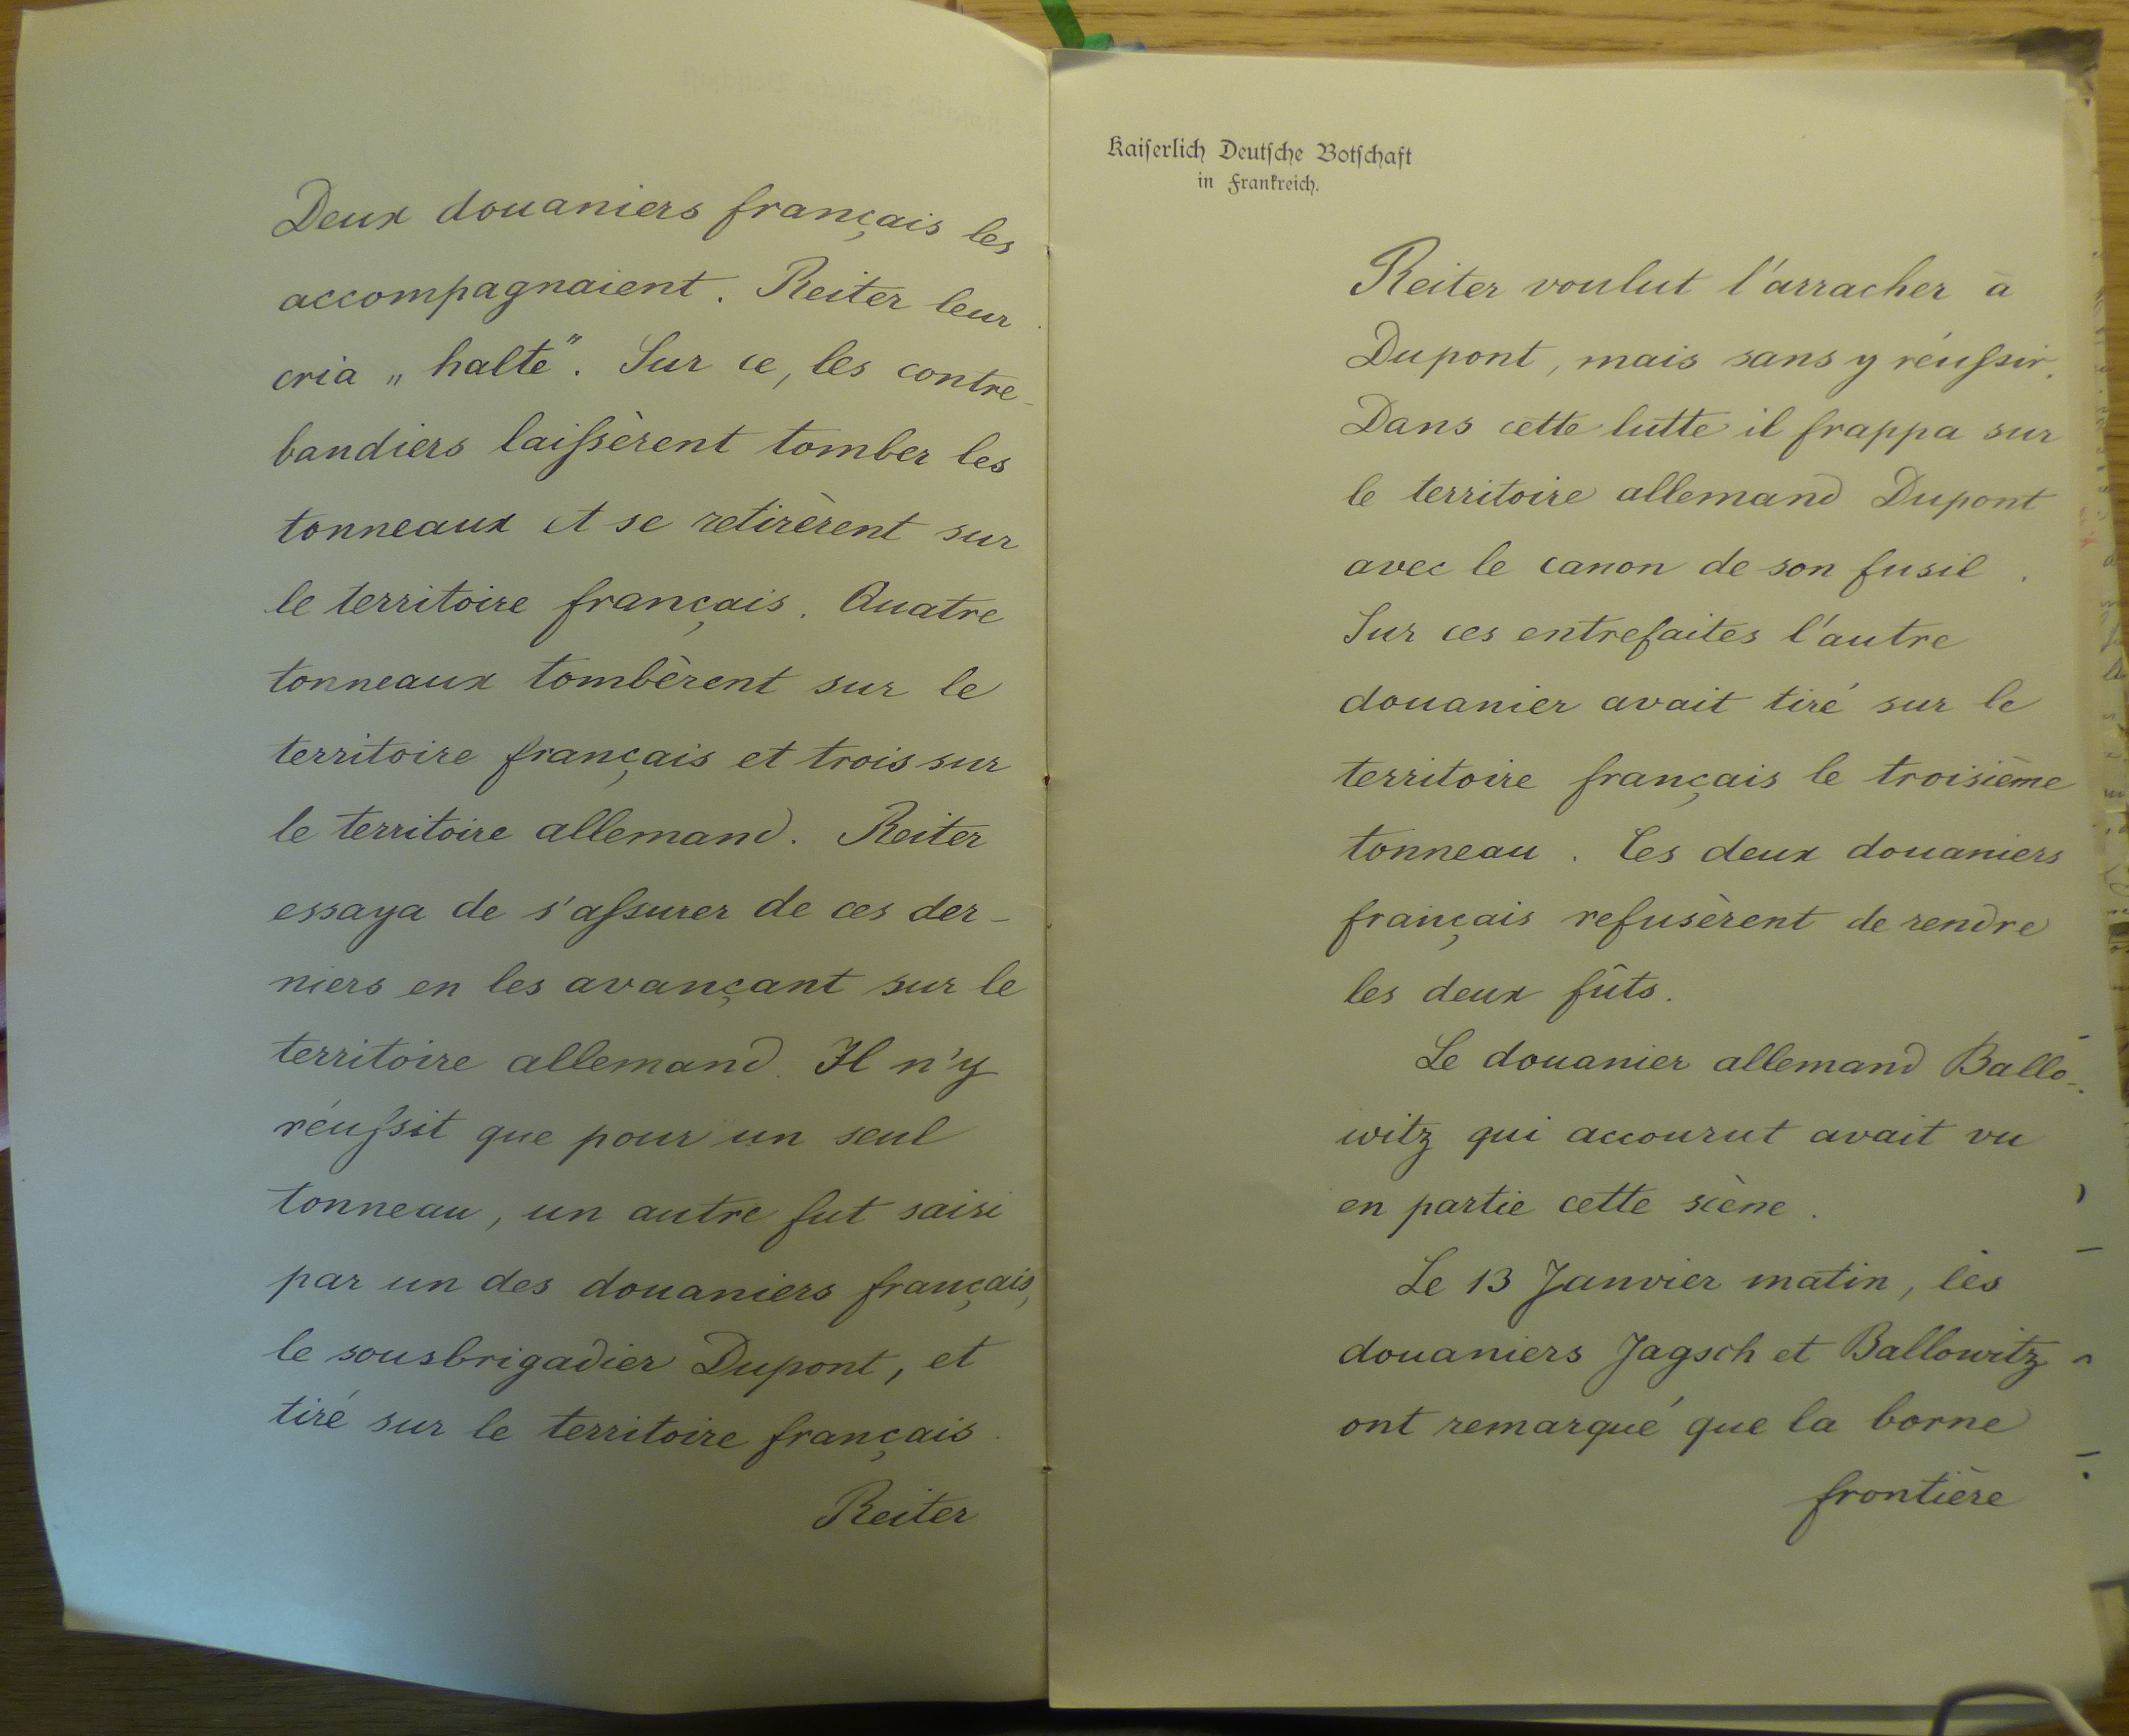 Deux douaniers français les
accompagnaient. Reiter leur
cria „halte". Sur ce, les contre-
bandiers laissèrent tomber les
tonneaux et se retirèrent sur
le territoire français. Quatre
tonneaux tombèrent sur le
territoire français et trois sur
le territoire allemand. Reiter
essaya de s'assurer de ces der-
niers en les avançant sur le
territoire allemand. Il n'y
réussit que pour un seul
tonneau, un autre fut saisi
par un des douaniers français,
le sousbrigadier Dupont, et
tiré sur le territoire français.
Reiter
Kaiserlich Deutsche Botschaft
in Frankreich.
Reiter voulut l'arracher à
Dupont, mais sans y réussir.
Dans cette lutte il frappa sur
le territoire allemand Dupont
avec le canon de son fusil.
Sur ces entrefaites l'autre
douanier avait tiré sur le
territoire français le troisième
tonneau. Les deux douaniers
français refusèrent de rendre
les deux fûts.
Le douanier allemand Ballo-
witz qui accourut avait vu
en partie cette scène.
Le 13 Janvier matin, les
douaniers Jagsch et Ballowitz
ont remarqué que la borne
frontière